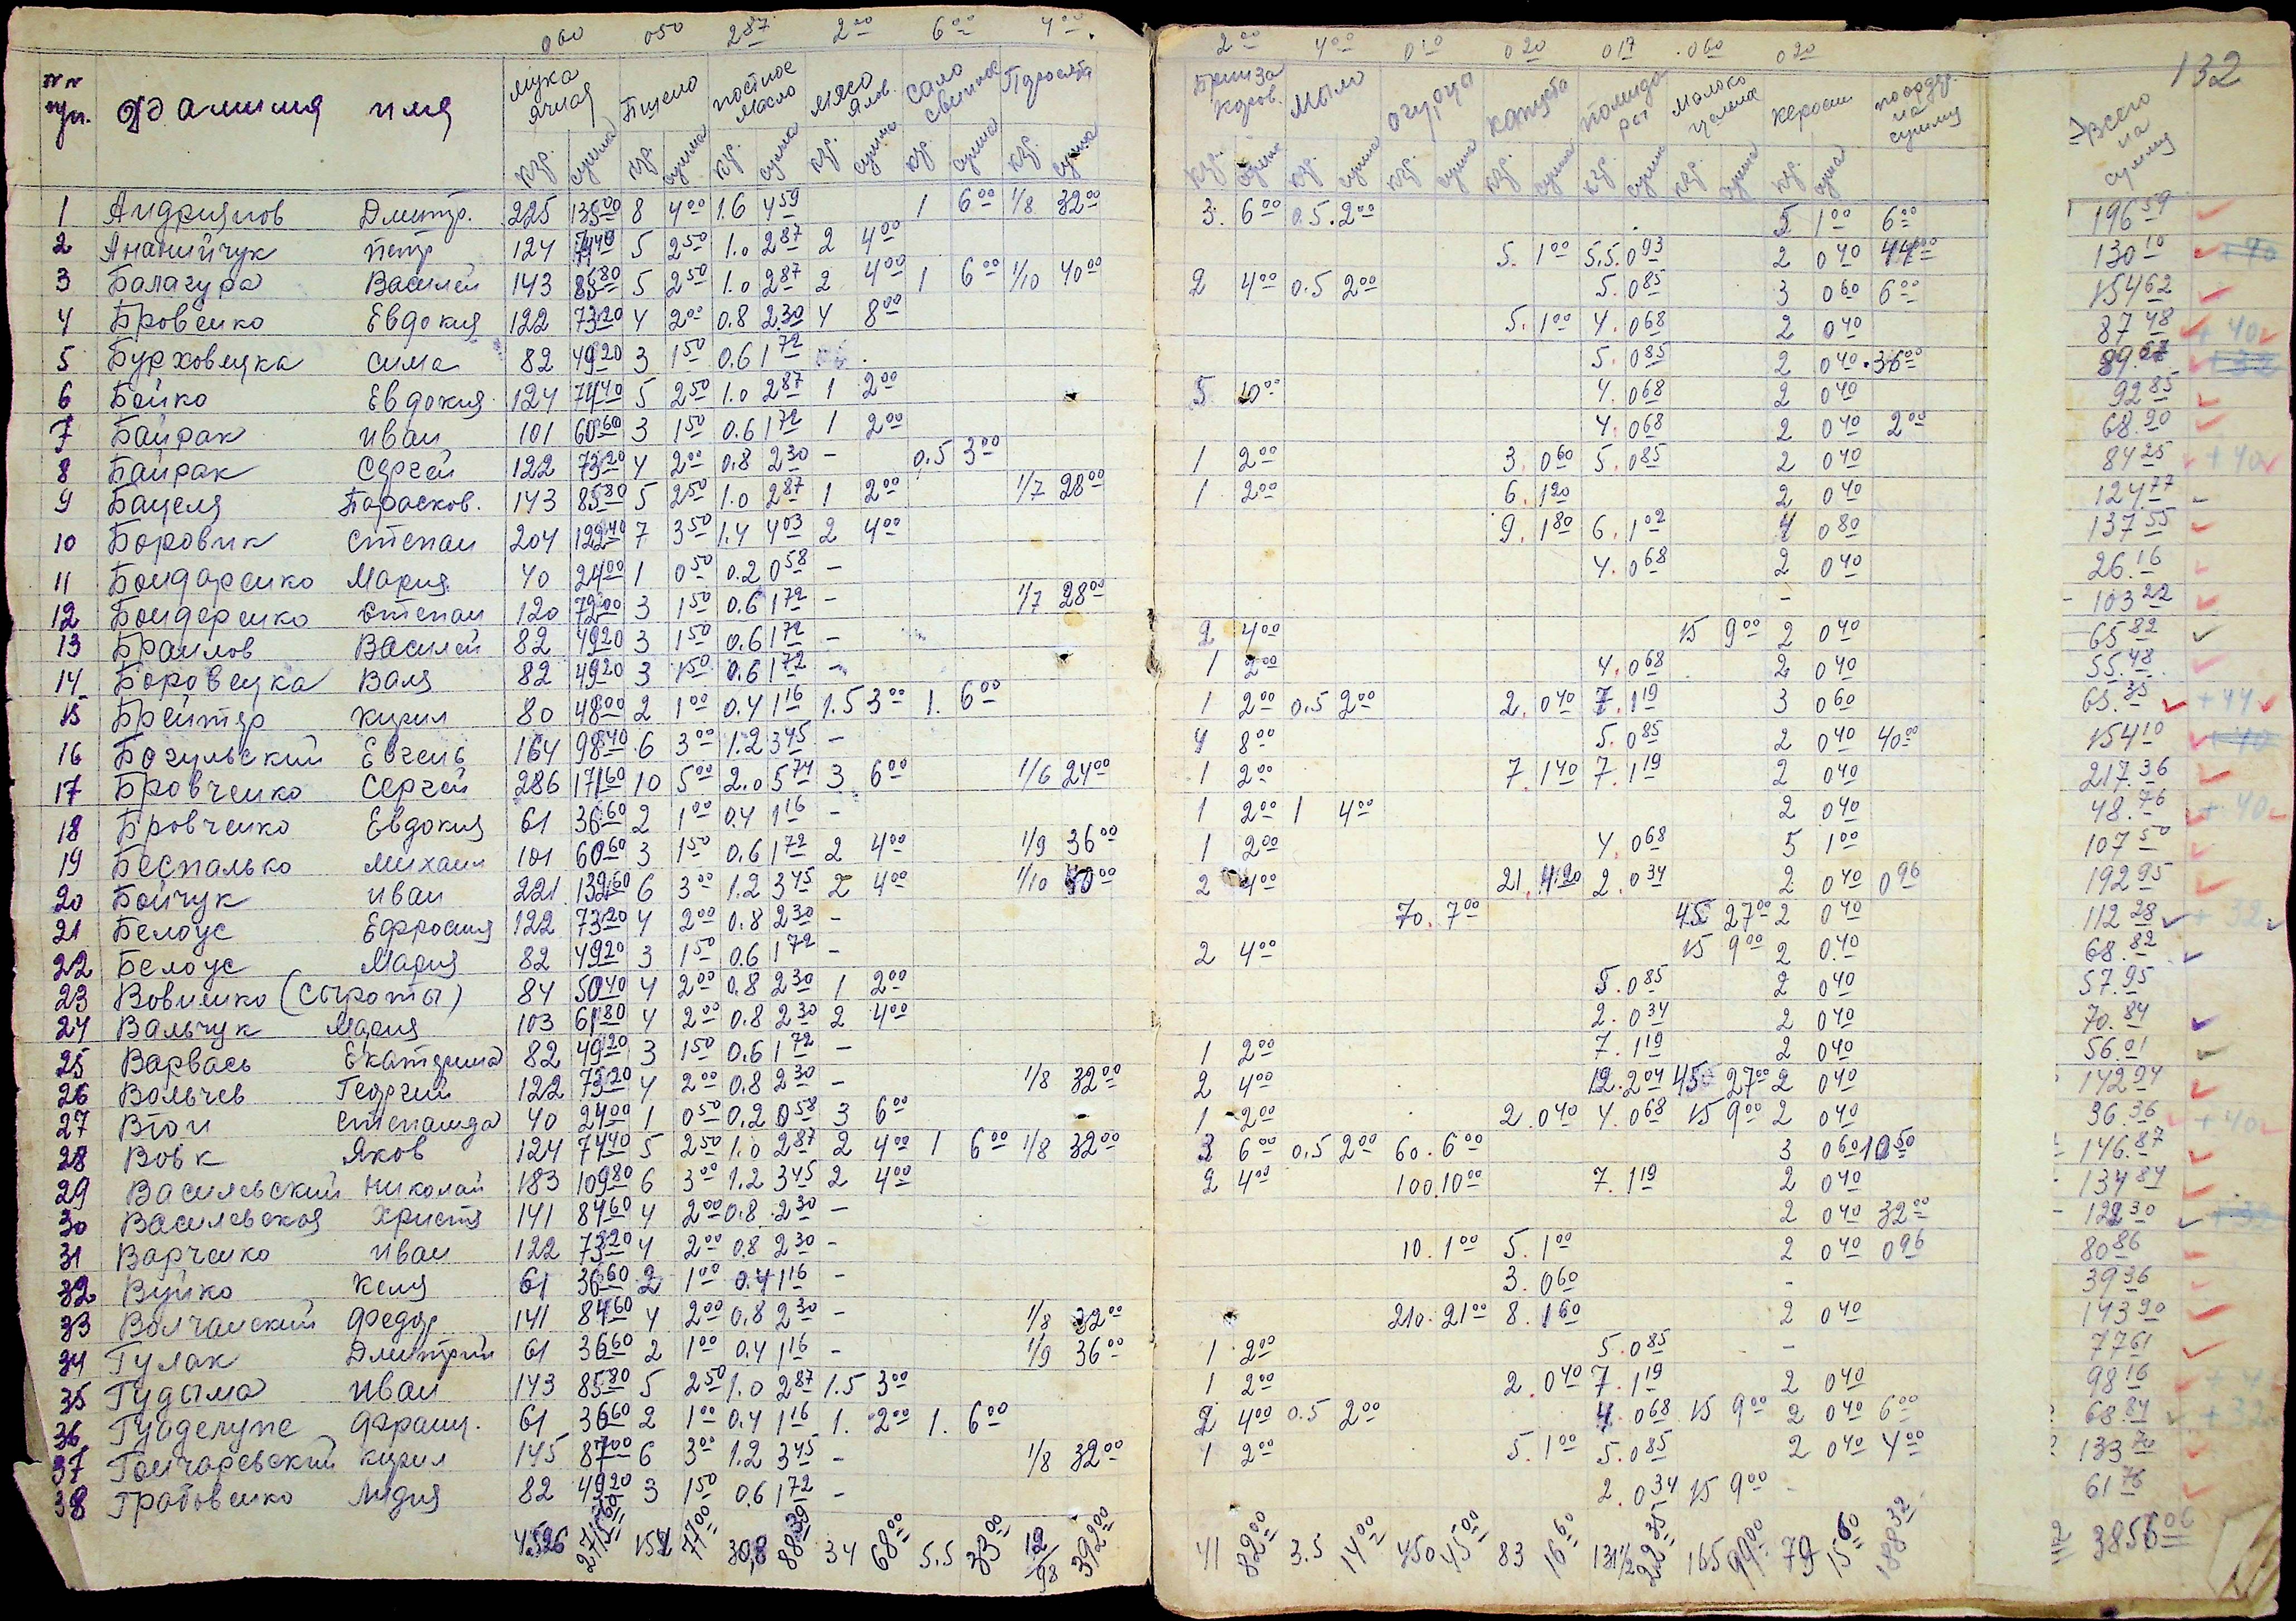 132
0 60 0 50 2 87 2 00 6 00 4 00 2 00 4 00 0 10 0 20 0 17 0 60 0 20
№ № п/п. Фамилия имя мука ячная Пшено постное масло мясо ялов. сало свиное Поросята Бринза коров. мыло огурцы капуста помидоры молоко цельное керосин по ордер. на сумму Всего на сумму
кгр. сумма кгр. сумма кгр. сумма кгр. сумма кгр. сумма кгр. сумма кгр. сумма кгр. сумма кгр. сумма кгр. сумма кгр. сумма кгр. сумма кгр. сумма
1 Андриянов Дмитр. 225 135 00 8 4 00 1.6 4 59 1 6 00 1/8 32 00 3. 6 00 0.5. 2 00 5 1 00 6 00 196 59
2 Ананийчук петр 124 74 40 5 2 50 1.0 2 87 2 4 00 5. 1 00 5,5. 0 93 2 0 40 44 00 130 10
3 Балагура Василий 143 85 80 5 2 50 1.0 2 87 2 4 00 1 6 00 1/10 40 00 2 4 00 0.5 2 00 5. 0 85 3 0 60 6 00 154 62
4 Бровенко Евдокия 122 73 20 4 2 00 0.8 2 30 4 8 00 5. 1 00 4. 0 68 2 0 40 87 48 + 40
5 Бурховецка сима 82 49 20 3 1 50 0.6 1 72 5. 0 85 2 0 40 36 00 89. 67
6 Бойко Евдокия 124 74 40 5 2 50 1.0 2 87 1 2 00 5 10 00 4. 0 68 2 0 40 92 85
7 Байрак иван 101 60 60 3 1 50 0.6 1 72 1 2 00 4. 0 68 2 0 40 2 00 68. 90
8 Байрак Сергей 122 73 20 4 2 00 0.8 2 30 - 0,5 3 00 1 2 00 3. 0 60 5. 0 85 2 0 40 84 25 + 40
9 Бацеля Парасков. 143 85 80 5 2 50 1.0 2 87 1 2 00 1/7 28 00 1 2 00 6. 1 20 2 0 40 124. 77
10 Боровик степан 204 122 40 7 3 50 1.4 4 03 2 4 00 9. 1 80 6. 1 02 4 0 80 137 55
11 Бондаренко Мария 40 24 00 1 0 50 0.2 0 58 - 4. 0 68 2 0 40 26. 16
12 Бондеренко степан 120 72 00 3 1 50 0.6 1 72 - 1/7 28 00 - 103 22
13 Браилов Василий 82 49 20 3 1 50 0.6 1 72 - 2 4 00 15 9 00 2 0 40 65 82
14 Боровецка Валя 82 49 20 3 1 50 0.6 1 72 - 1 2 00 4. 0 68 2 0 40 55. 48
15 Брейтер кирил 80 48 00 2 1 00 0.4 1 16 1.5 3 00 1. 6 00 1 2 00 0.5 2 00 2. 0 40 7. 1 19 3 0 60 65. 35 + 44
16 Богульский Евгень 164 98 40 6 3 00 1.2 3 45 - 4 8 00 5. 0 85 2 0 40 40 00 154 10
17 Бровченко Сергей 286 171 60 10 5 00 2.0 5 74 3 6 00 1/6 24 00 1 2 00 7. 1 40 7. 1 19 2 0 40 217. 36
18 Бровченко Евдокия 61 36 60 2 1 00 0.4 1 16 - 1 2 00 1 4 00 2 0 40 48. 76 + 40
19 Беспалько михаил 101 60 60 3 1 50 0.6 1 72 2 4 00 1/9 36 00 1 2 00 4. 0 68 5 1 00 107 50
20 Бойчук иван 221 132 60 6 3 00 1.2 3 45 2 4 00 1/10 40 00 2 4 00 21. 4 20 2. 0 34 2 0 40 0 96 192 95
21 Белоус Ефросиия 122 73 20 4 2 00 0.8 2 30 - 70. 7 00 45 27 00 2 0 40 112 28 + 32
22 Белоус Мария 82 49 20 3 1 50 0.6 1 72 - 2 4 00 15 9 00 2 0. 40 68. 82
23 Вовненко (Сыроты) 84 50 40 4 2 00 0.8 2 30 1 2 00 5. 0 85 2 0 40 57. 95
24 Вальчук Мария 103 61 80 4 2 00 0.8 2 30 2 4 00 2. 0 34 2 0 40 70. 84
25 Варвась Екатерина 82 49 20 3 1 50 0.6 1 72 - 1 2 00 7. 1 19 2 0 40 56. 01
26 Вольчев Георгий 122 73 20 4 2 00 0.8 2 30 - 1/8 32 00 2 4 00 12. 2 04 45 27 00 2 0 40 142 94
27 Втои степанида 40 24 00 1 0 50 0.2 0 58 3 6 00 1 2 00 2. 0 40 4. 0 68 15 9 00 2 0 40 36. 36 + 40
28 Вовк Яков 124 74 40 5 2 50 1.0 2 87 2 4 00 1 6 00 1/8 32 00 3 6 00 0.5 2 00 60. 6 00 3 0 60 10 50 146. 87
29 Василевский николай 183 109 80 6 3 00 1.2 3 45 2 4 00 2 4 00 100. 10 00 7. 1 19 2 0 40 134 84
30 Василевская христя 141 84 60 4 2 00 0.8 2 30 - 2 0 40 32 00 122 30
31 Варченко иван 122 73 20 4 2 00 0.8 2 30 - 10. 1 00 5. 1 00 2 0 40 0 96 80 86
32 Вуйко келя 61 36 60 2 1 00 0.4 1 16 - 3. 0 60 - 39 36
33 Волчанский Федор 141 84 60 4 2 00 0.8 2 30 - 1/8 32 00 210. 21 00 8. 1 60 2 0 40 143 90
34 Гулак Дмитрий 61 36 60 2 1 00 0.4 1 16 - 1/9 36 00 1 2 00 5. 0 85 - 77 61
35 Гудыма иван 143 85 80 5 2 50 1.0 2 87 1.5 3 00 1 2 00 2. 0 40 7. 1 19 2 0 40 98 16
36 Гуаделупе Франц. 61 36 60 2 1 00 0.4 1 16 1. 2 00 1. 6 00 2 4 00 0.5 2 00 4. 0 68 15 9 00 2 0 40 6 00 68. 84 + 32
37 Гончаревский кирил 145 87 00 6 3 00 1.2 3 45 - 1/8 32 00 1 2 00 5. 1 00 5. 0 85 2 0 40 4 00 133 70
38 Грабовенко Лидия 82 49 20 3 1 50 0.6 1 72 - 2. 0 34 15 9 00 - 61 76
4526 2715 60 154 77 00 30,8 88 39 34 68 00 5.5 33 00 12/98 392 00 41 82 00 3.5 14 00 450 45 00 83 16 60 131 1/2 22 35 165 99 00 79 15 60 188 32 3856 06